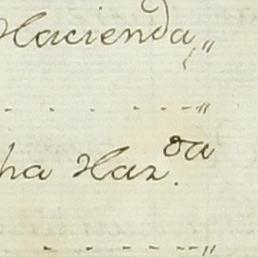 Hacienda, "
ha Haz.da